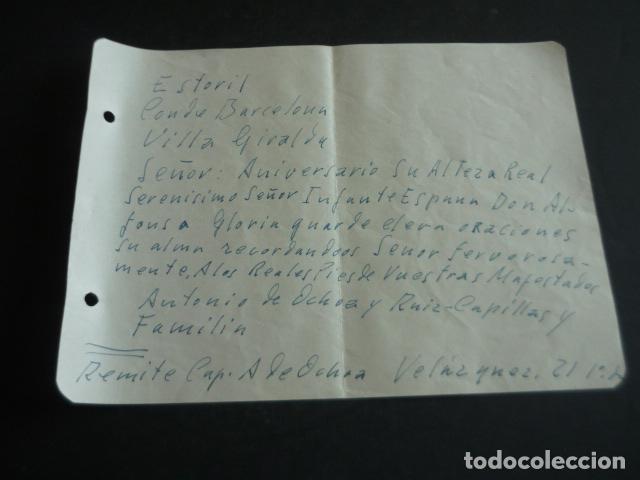 Estoril
Conde Barcelona
Villa Giralda
Señor: Aniversario Su Alteza Real
Serenisimo Señor Infante Espana Don Al-
fonso Gloria guarde eleva oraciones
su alma recordandoos Señor fervorosa-
mente, A los Reales Pies de Vuestras Majestades
Antonio de Ochoa y Ruiz-Capillas y
Familia
Remite Cap. A de Ochoa Velázquez. 21 1º
todocoleccion.net